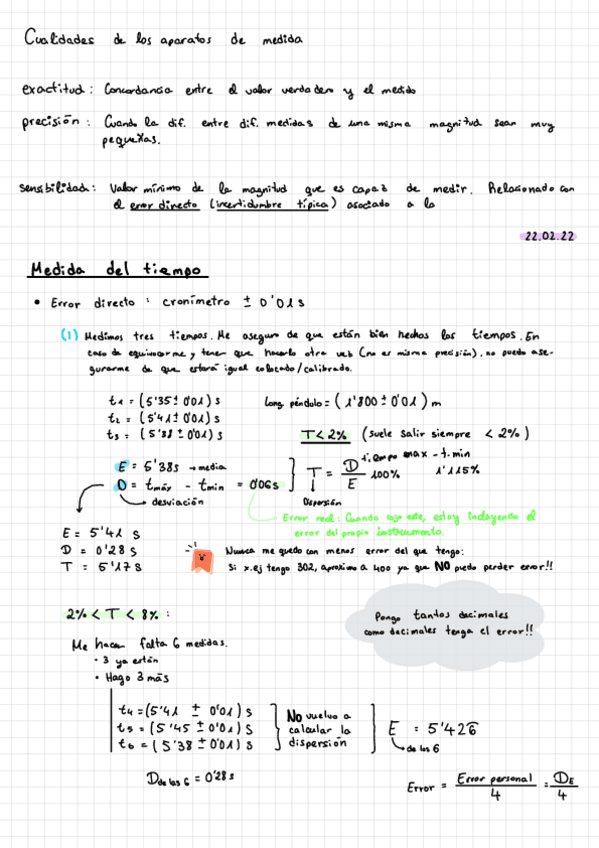 Cualidades de los aparatos de medida
exactitud: Concordancia entre el valor verdadero y el medido
precisión: Cuando la dif. entre dif. medidas de una misma magnitud sean muy
pequeñas.
sensibilidad: Valor mínimo de la magnitud que es capaz de medir. Relacionado con
el error directo (incertidumbre típica) asociado a la
22.02.22
Medida del tiempo
• Error directo: cronímetro ± 0'01s
(1) Medimos tres tiempos. Me aseguro de que están bien hechos los tiempos. En
caso de equivocarme y tener que hacerlo otra vez (no es misma precisión), no puedo ase-
gurarme de que estará igual colocado/calibrado.
t1 = (5'35 ± 0'01) s
Long péndulo = (1'800 ± 0'01) m
t2 = (5'41 ± 0'01) s
t3 = (5'38 ± 0'01) s
T < 2% (suele salir siempre < 2%)
E = 5'38s → media
D = tmáx - tmin = 0'06s
desviación
T = D/E 100%
tiempo max - t.min
1'115%
Dispersión
Error real: Cuando cojo este, estoy incluyendo el
error del propio instrumento.
E = 5'41 s
D = 0'28 s
T = 5'17 s
Nunca me quedo con menos error del que tengo:
Si x.ej tengo 302, aproximo a 400 ya que NO puedo perder error!!
2% < T < 8% :
Pongo tantos decimales
como decimales tenga el error!!
Me hacen falta 6 medidas.
• 3 ya están
• Hago 3 más
t4 = (5'41 ± 0'01) s
t5 = (5'45 ± 0'01) s
t6 = (5'38 ± 0'01) s
No vuelvo a
calcular la
dispersión
E = 5'426
de los 6
D de las 6 = 0'28 s
Error = Error personal/4 = DE/4